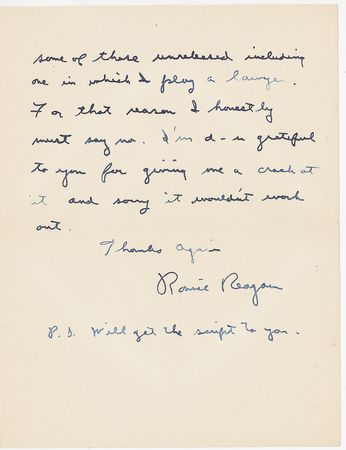 some of those unreleased including
one in which I play a lawyer.
For that reason I honestly
must say no. I'm d-n grateful
to you for giving me a crack at
it and sorry it wouldn't work
out.
Thanks Again
Ronnie Reagan
P.S. Will get the script to you.